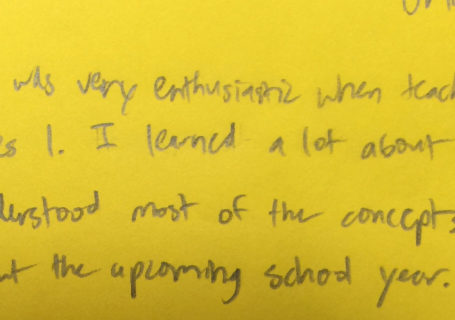 was very enthusiastic when teac
es 1. I learned a lot about
derstood most of the concepts
nt the upcoming school year.